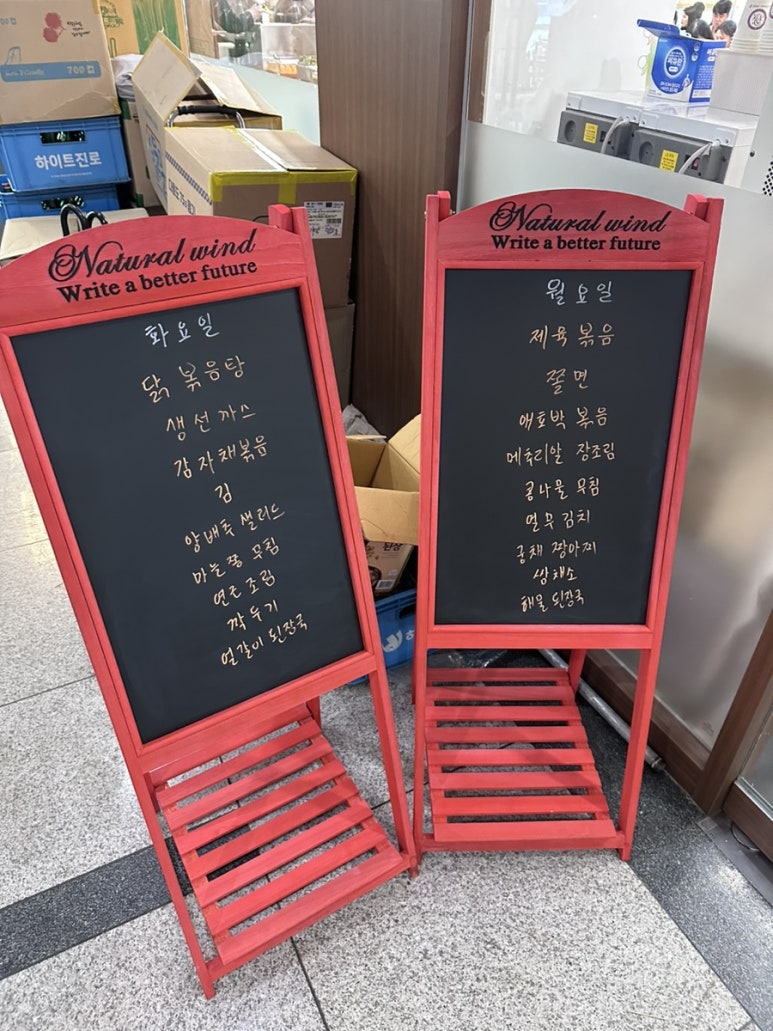 하이트진로
Natural wind
Write a better future
화요일
닭 볶음탕
생선까스
감자채볶음
김
양배추 샐러드
마늘쫑 무침
연근 조림
깍두기
얼갈이 된장국
Natural wind
Write a better future
월요일
제육볶음
쫄면
애호박 볶음
메추리알 장조림
콩나물 무침
열무김치
궁채 짱아찌
쌈채소
해물 된장국